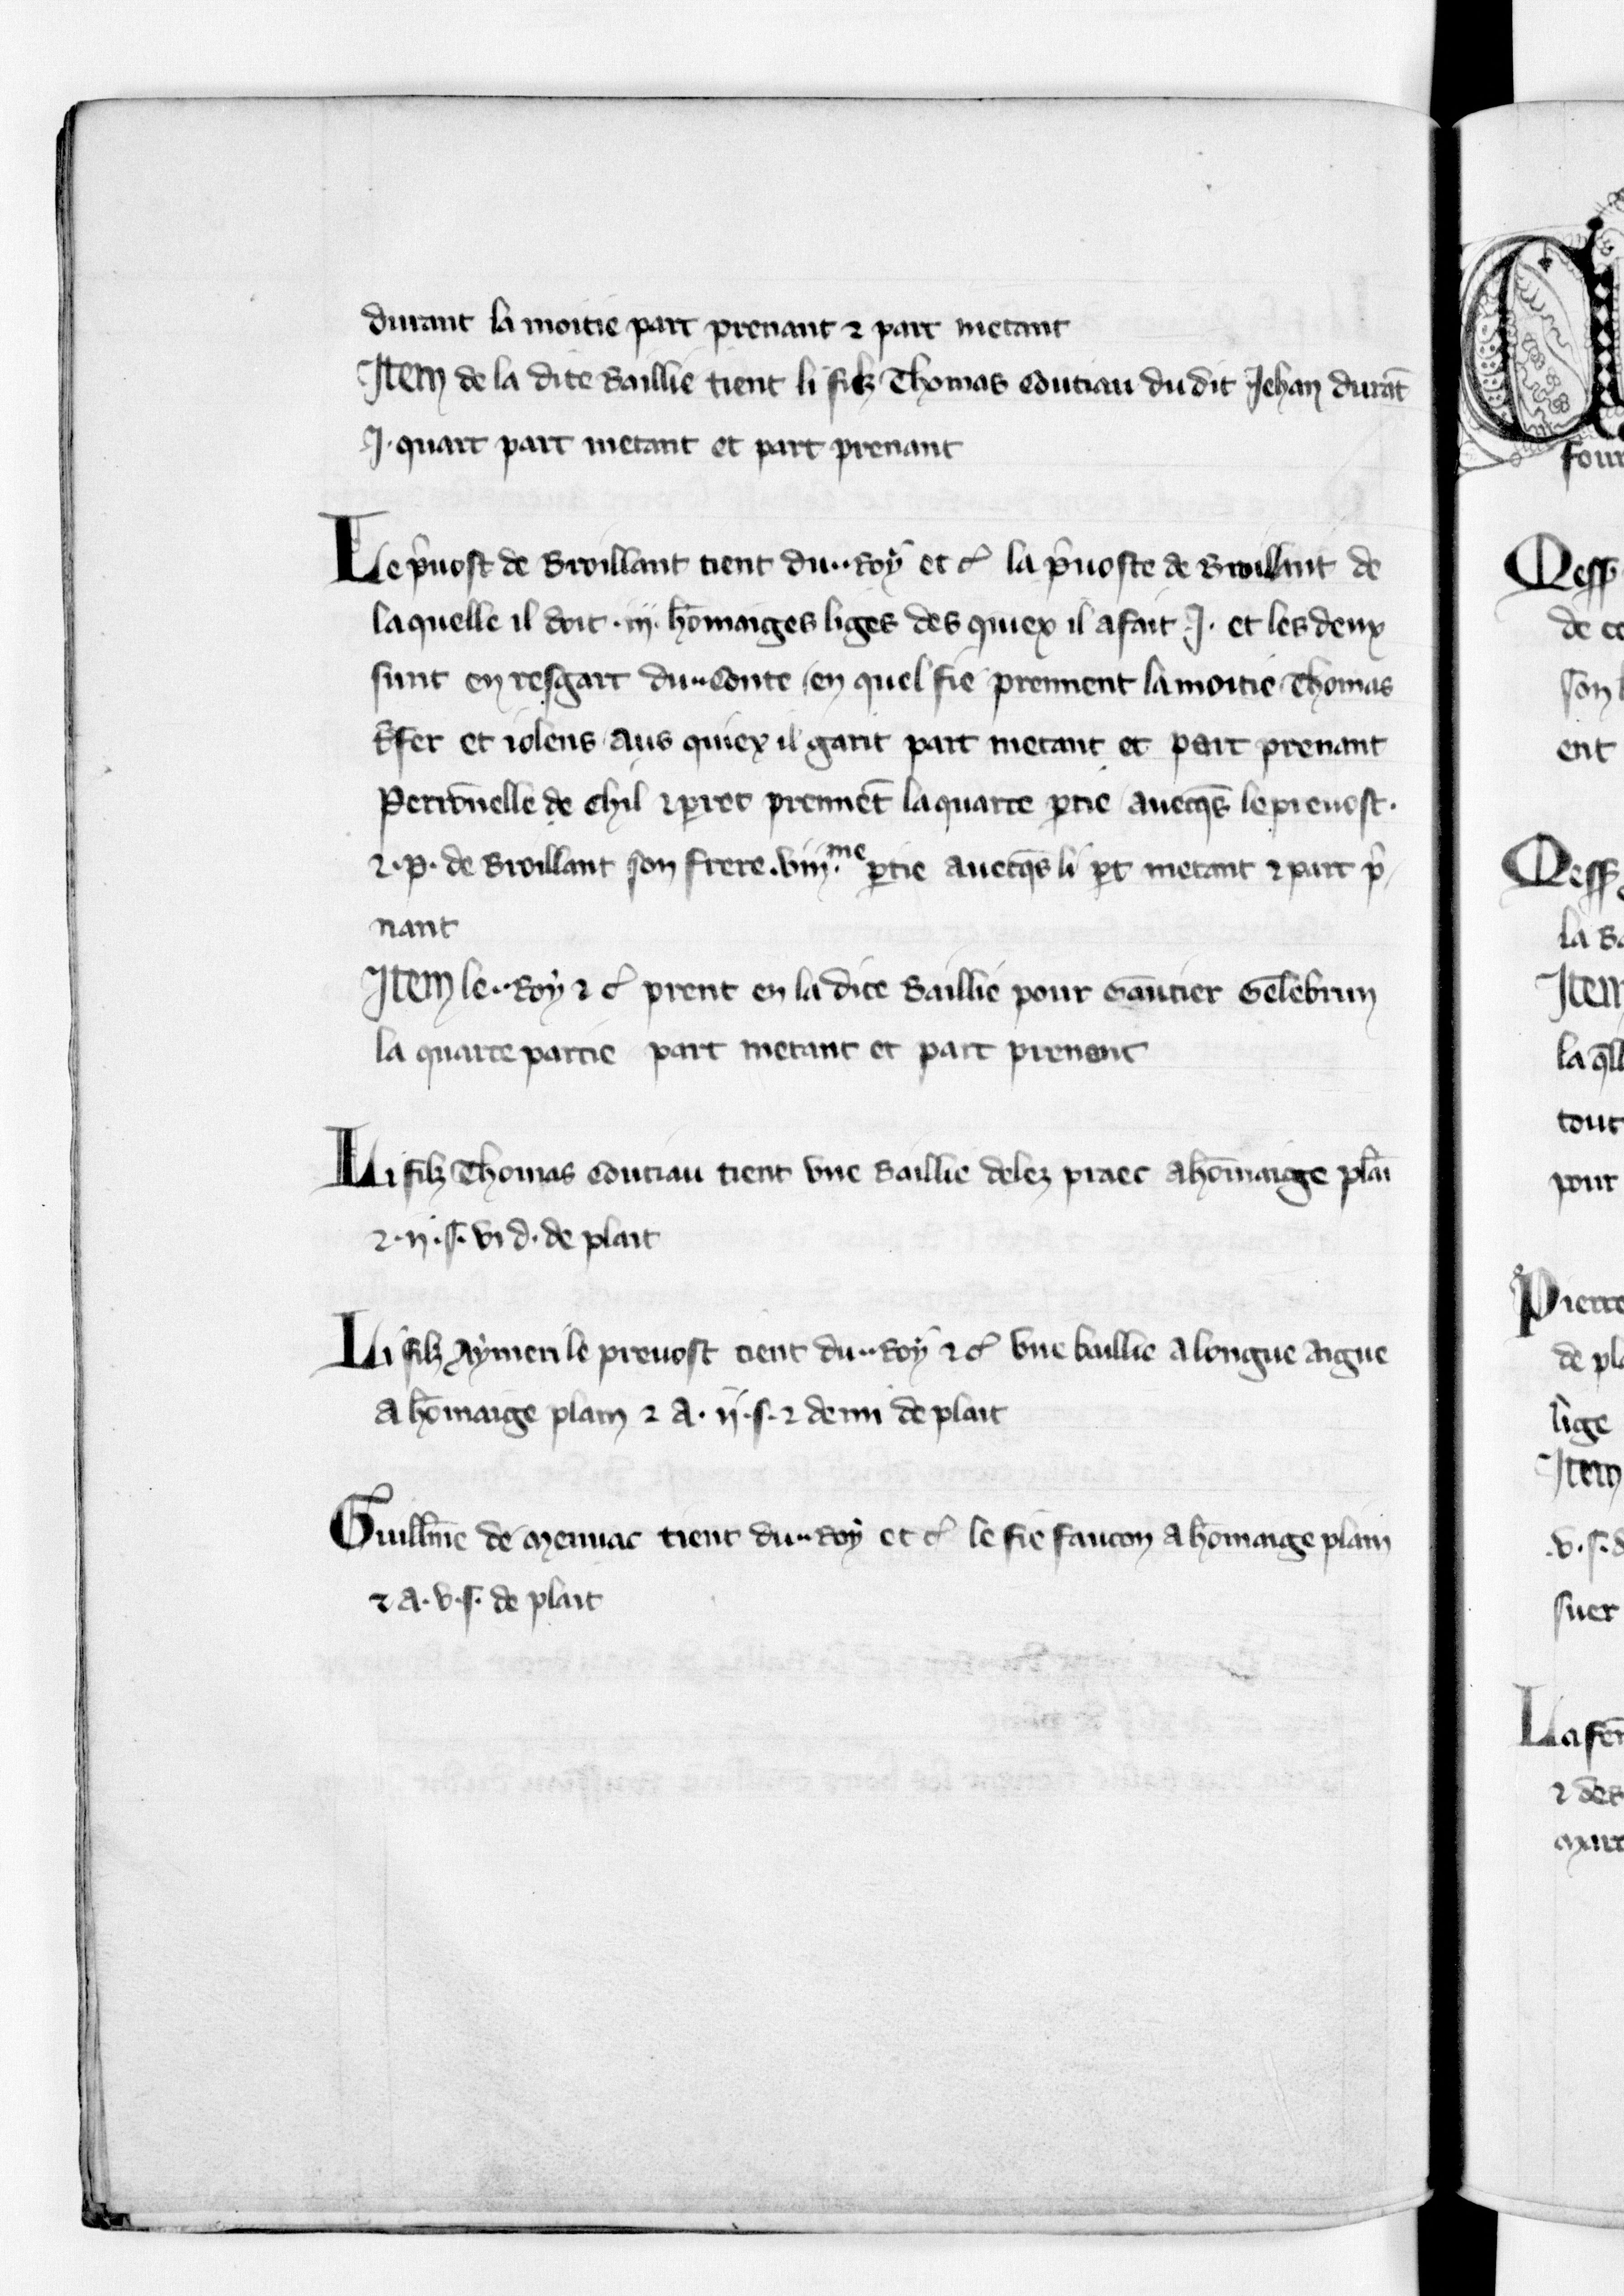 durant la moitie part prenant ⁊ part metant
Item de la dite Baillie tient li filz Thomas Coutiau du dit Jehan durāt
.J. quart part metant et part prenant
Le p̄uost de Broillant tient du .. Roy et cͤ la p̄uoste de Broillant de
laquelle il doit .iij. hōmaiges liges des quiex il a fait .J. et les deux
sunt en resgart du .. Conte / en quel fie prennent la moitie Thomas
et iolens / aus quiex il garit part metant et part prenant
Perrōnelle de Chil ⁊ prennēt la quarte ꝑtie / auecq̄s le preuost.
⁊ .P. de Broillant son frere .viij.me ꝑtie auecq̄s li ꝑt metant ⁊ part p̄/
nant
Item le .. Roy ⁊ cͤ prent en la dite Baillie pour Gautier Gelebrun
la quarte partie part metant et part prenent
Li filz Thomas Coutiau tient vne Baillie delez praec a hōmaige plāi
⁊ .ij. s. vi d. de plait
Li filz Aymeri le preuost tient du .. Roy ⁊ cͤ vne baillie a longue aigue
a hōmaige plain ⁊ a .ij. s. ⁊ demi de plait
Guillm̄e de Menuac tient du .. Roy et cͤ le fie faucon a hōmaige plain
⁊ a .v. s. de plait
Mess
de ce
son
ent
Mess
la Ba
Item
la q̄ll
tout
pour
Pierre
de pla
lige
Item
.v. s. d
suer
La fem̄
⁊ des
Mart